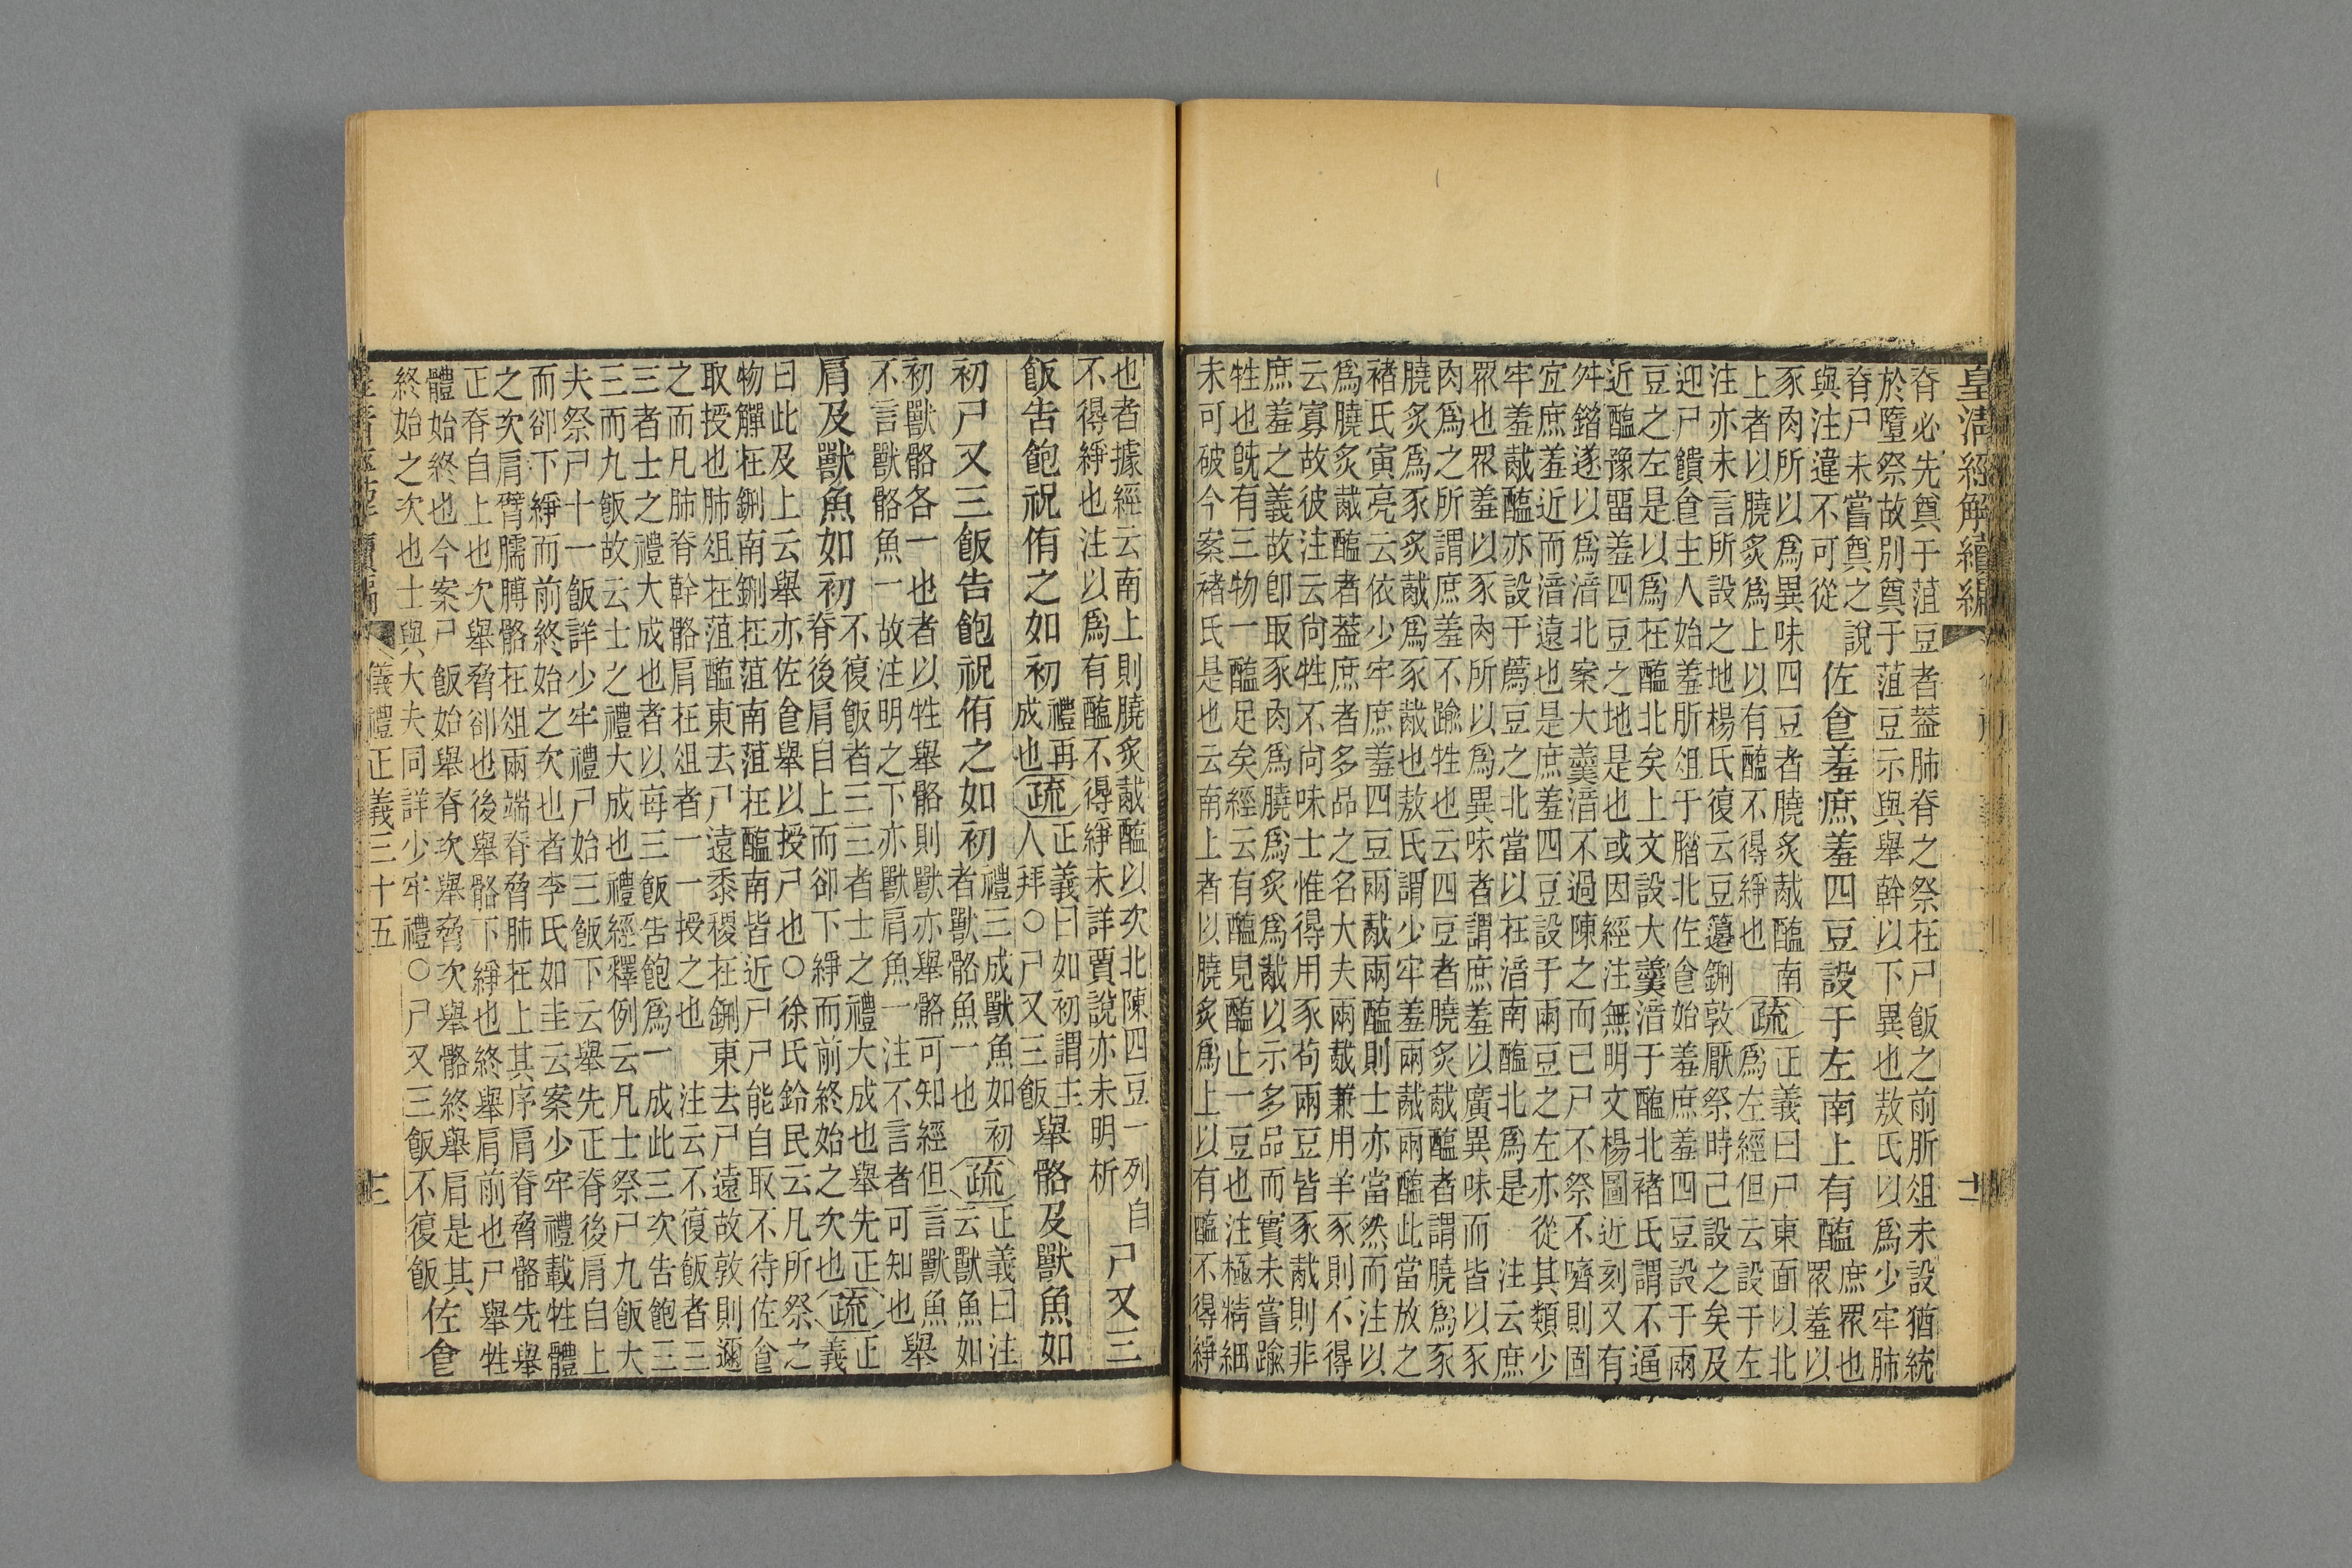 皇淸經解續編
脊必先奠于菹豆者葢肺脊之祭在尸飯之前肵俎未設猶統
於墮祭故別奠于菹豆示與舉幹以下異也敖氏以爲少牢肺
脊尸未嘗奠之說
與注違不可從
佐食羞庶羞四豆設于左南上有醢
庶眾也
眾羞以
豕肉所以爲異味四豆者膮炙胾醢南
上者以膮炙爲上以有醢不得綪也
疏
正義曰尸東面以北
爲左經但云設于左
注亦未言所設之地楊氏復云豆籩鉶敦厭祭時已設之矣及
迎尸饋食主人始羞肵俎于腊北佐食始羞庶羞四豆設于兩
豆之左是以爲在醢北矣上文設大羹湆于醢北褚氏謂不逼
近醢豫畱羞四豆之地是也或因經注無明文楊圖近刻又有
舛錯遂以爲湆北案大羹湆不過陳之而已尸不祭不嚌則固
宜庶羞近而湆遠也是庶羞四豆設于兩豆之左亦從其類少
牢羞胾醢亦設于薦豆之北當以在湆南醢北爲是 注云庶
眾也眾羞以豕肉所以爲異味者謂庶羞以廣異味而皆以豕
肉爲之所謂庶羞不踰牲也云四豆者膮炙胾醢者謂膮爲豕
膮炙爲豕炙胾爲豕胾也敖氏謂少牢羞兩胾兩醢此當放之
褚氏寅亮云依少牢庶羞四豆兩胾兩醢則士亦當然而注以
爲膮炙胾醢者葢庶者多品之名大夫兩胾兼用羊豕則不得
云寡故彼注云尙牲不尙味士惟得用豕苟兩豆皆豕胾則非
庶羞之義故卽取豕肉爲膮爲炙爲胾以示多品而實未嘗踰
牲也旣有三物一醢足矣經云有醢皃醢止一豆也注極精細
未可破今案褚氏是也云南上者以膮炙爲上以有醢不得綪
也者據經云南上則膮炙胾醢以次北陳四豆一列自
不得綪也注以爲有醢不得綪未詳賈說亦未明析
尸又三
飯告飽祝侑之如初
禮再
成也
疏
正義曰如初謂主
人拜○尸又三飯
舉骼及獸魚如
初尸又三飯告飽祝侑之如初
禮三成獸魚如初
者獸骼魚一也
疏
正義曰注
云獸魚如
初獸骼各一也者以牲舉骼則獸亦舉骼可知經但言獸魚
不言獸骼魚一故注明之下亦獸肩魚一注不言者可知也
舉
肩及獸魚如初
不復飯者三三者士之禮大成也舉先正
脊後肩自上而卻下綪而前終始之次也
疏
正
義
曰此及上云舉亦佐食舉以授尸也○徐氏鈴民云凡所祭之
物觶在鉶南鉶在菹南菹在醢南皆近尸尸能自取不待佐食
取授也肺俎在菹醢東去尸遠黍稷在鉶東去尸遠故敦則邇
之而凡肺脊幹骼肩在俎者一一授之也 注云不復飯者三
三者士之禮大成也者以每三飯告飽爲一成此三次告飽三
三而九飯故云士之禮大成也禮經釋例云凡士祭尸九飯大
夫祭尸十一飯詳少牢禮尸始三飯下云舉先正脊後肩自上
而卻下綪而前終始之次也者李氏如圭云案少牢禮載牲體
之次肩臂臑膊骼在俎兩端脊脅肺在上其序肩脊脅骼先舉
正脊自上也次舉脅卻也後舉骼下綪也終舉肩前也尸舉牲
體始終也今案尸飯始舉脊次舉脅次舉骼終舉肩是其
終始之次也士與大夫同詳少牢禮○尸又三飯不復飯
佐食
儀禮正義三十五